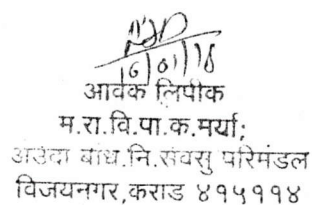 16/01/18
आवक लिपीक
म.रा.वि.पा.क.मर्या;
बांध.नि.संवसु परिमंडल
विजयनगर,कराड ४१५११४